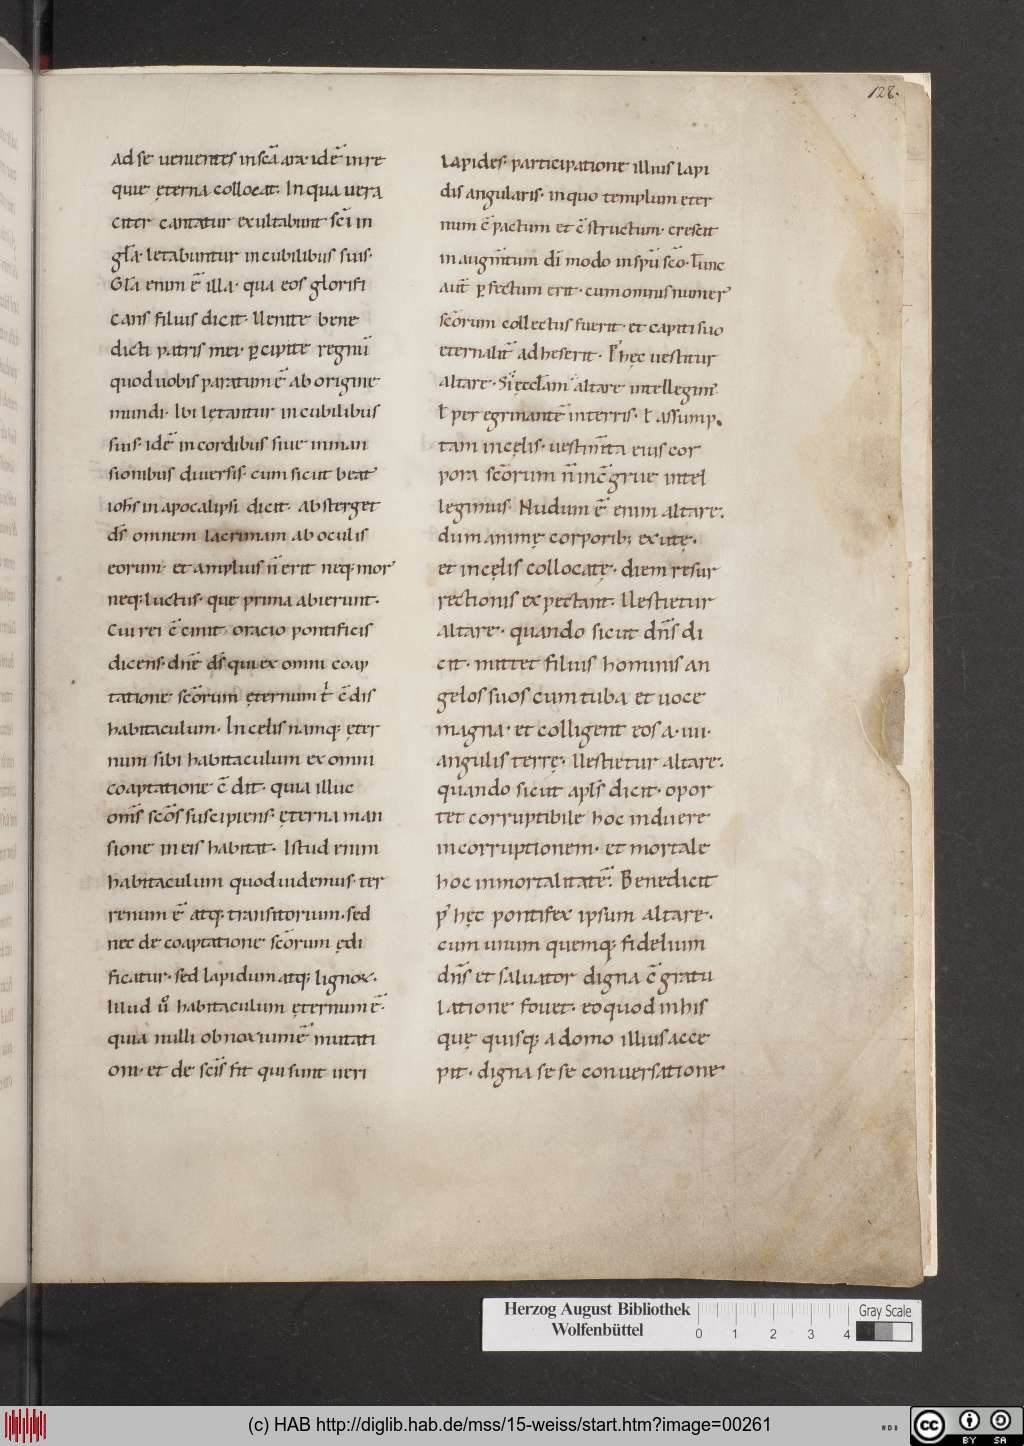 128.
Ad se uenientes in scā arce idē in re
quie ęterna collocat. In qua uera
citer cantatur exultabunt scī in
glā. letabuntur in cubilibus suis.
Glā enim ē illa. qua eos glorifi
cans filius dicit. Uenite bene
dicti patris mei. ꝑcipite regnū
quod uobis paratum ē ab origine
mundi. Ibi lętantur in cubilibus
suis. idē in cordibus siue in man
sionibus diuersis. cum sicut beat᾽
ioħs in apocalipsi dicit. Absterget
ds̄ omnem lacrimam ab oculis
eorum. et amplius n̄ erit neq; mor᾽
neq; luctus. que prima abierunt.
Cui rei c̄cinit oracio pontificis
dicens. dn̄e ds̄ qui ex omni coap
tatione scōrum ęternum t̄ c̄dis
habitaculum. In celis namq; ęter
num sibi habitaculum ex omni
coaptatione c̄dit. quia illuc
om̄s scōs suscipiens. ęterna man
sione in eis habitat. Istud enim
habitaculum quod uidemus. ter
renum ē atq; transitorium. sed
nec de coaptatione scōrum ędi
ficatur. sed lapidum atq; lignoꝝ.
Illud ů habitaculum ęternum ē.
quia nulli obnoxium ē mutati
oni. et de scīs fit qui sunt ueri
Lapides. participatione illius lapi
dis angularis. in quo templum eter
num c̄pactum et c̄structum. crescit
in augm̄tum dī modo in spū scō. Tunc
aut̄ ꝑfectum erit. cum omnis numer᾽
scōrum collectus fuerit. et capiti suo
eternalit̄ adheserit. P᾽ hęc uestitur
altare. Si ęccłam altare intellegim᾽
ł peregrinantē in terris. ł assump
tam in cęlis. uestim̄ta eius cor
pora scōrum n̄ inc̄grue intel
legimus. Nudum ē enim altare.
dum animę corporib; exutę.
et in cęlis collocatę. diem resur
rectionis expectant. Uestietur
altare. quando sicut dn̄s di
cit. mittet filius hominis an
gelos suos cum tuba et uoce
magna. et colligent eos a .iiii.
angulis terrę. Uestietur altare.
quando sicut apls̄ dicit. opor
tet corruptibile hoc induere
incorruptionem. et mortale
hoc inmortalitatē. Benedicit
p᾽ hęc pontifex ipsum altare.
cum unum quemq; fidelium
dn̄s et saluator digna c̄gratu
latione fouet. eo quod in his
quę quisq; a domo illius acce
pit. digna se se conuersatione
Herzog August Bibliothek
Wolfenbüttel
0 1 2 3 4
Gray Scale
(c) HAB http://diglib.hab.de/mss/15-weiss/start.htm?image=00261
WDB
cc BY SA